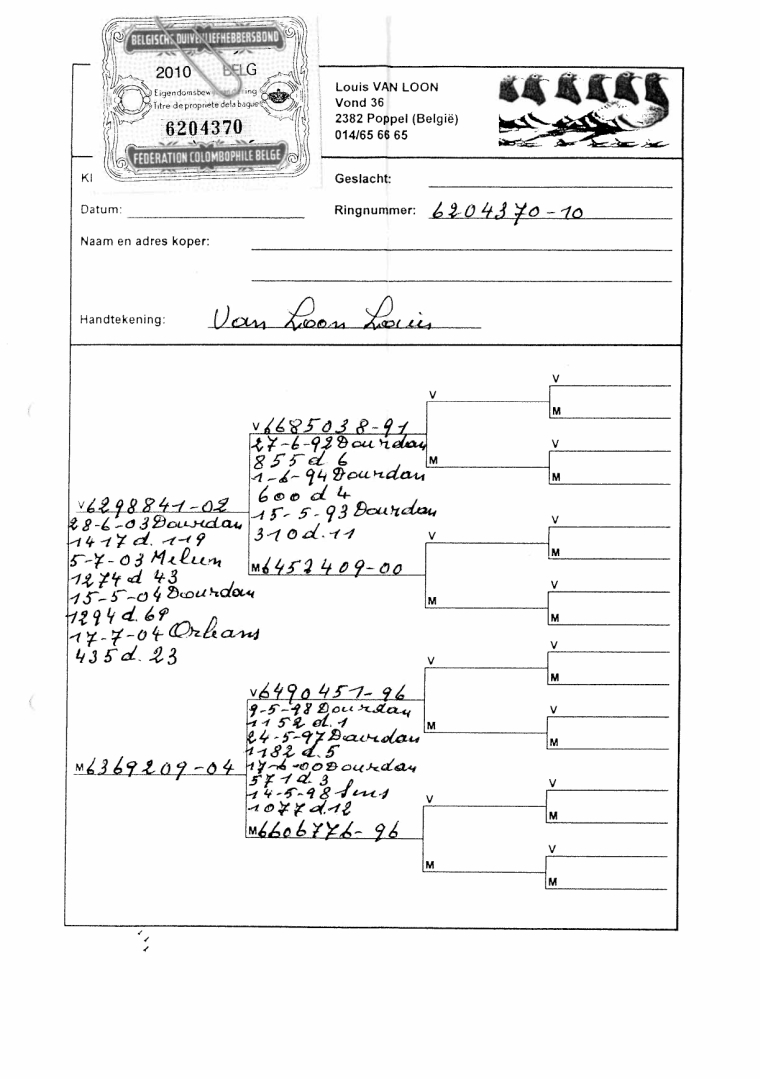 BELGISCHE DUIVENLIEFHEBBERSBOND
2010 BELG
Titre de propriete de la bague
6204370
FÉDÉRATION COLOMBOPHILE BELGE
Louis VAN LOON
Vond 36
2382 Poppel (België)
014/65 66 65
Kl
Geslacht:
Datum:
Ringnummer: 6204370-10
Naam en adres koper:
Handtekening: Van Loon Louis
V 6298841-02
28-6-03 Dourdan
1417 d. 119
5-7-03 Melun
1274 d 43
15-5-04 Dourdan
1294 d. 69
17-7-04 Orleans
435 d. 23
M 6369209-04
V 6685038-91
27-6-92 Dourdan
855 d 6
1-6-94 Dourdan
600 d 4
15-5-93 Dourdan
310 d. 11
M 6452409-00
V 6490451-96
9-5-98 Dourdan
1152 d. 1
24-5-97 Dourdan
1182 d. 5
17-6-00 Dourdan
571 d. 3
14-5-98 Sens
1077 d. 12
M 6606776-96
V
M
V
M
V
M
V
M
V
M
V
M
V
M
V
M
V
M
V
M
V
M
V
M